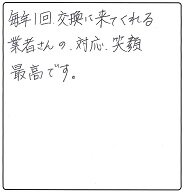 毎年1回.交換に来てくれる
業者さんの.対応.笑顔
最高です。